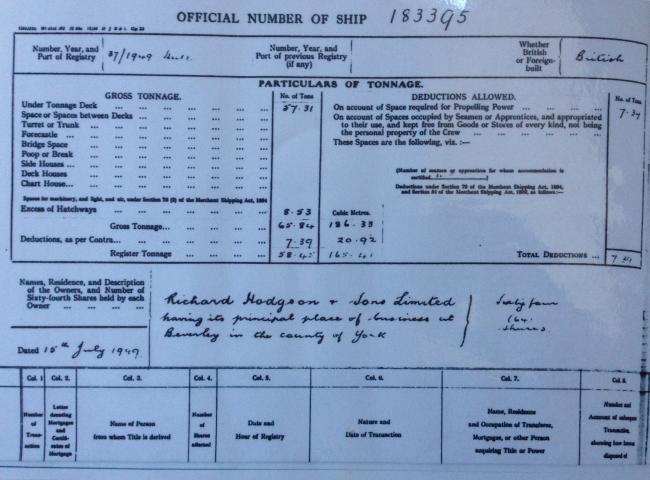 OFFICIAL NUMBER OF SHIP 183395
Number, Year, and Port of Registry 37/1949 Hull.
Number, Year, and Port of previous Registry (if any)
Whether British or Foreign-built British
PARTICULARS OF TONNAGE.
GROSS TONNAGE. No. of Tons
DEDUCTIONS ALLOWED. No. of Tons
Under Tonnage Deck ... 57.31
Space or Spaces between Decks ...
Turret or Trunk ...
Forecastle ...
Bridge Space ...
Poop or Break ...
Side Houses ...
Deck Houses ...
Chart House ...
Spaces for machinery, and light, and air, under Section 78 (2) of the Merchant Shipping Act, 1894
Excess of Hatchways ... 8.53 Cubic Metres.
Gross Tonnage... 65.84 186.33
Deductions, as per Contra... 7.39 20.92
Register Tonnage 58.45 165.41
On account of Space required for Propelling Power ... 7.39
On account of Spaces occupied by Seamen or Apprentices, and appropriated
to their use, and kept free from Goods or Stores of every kind, not being
the personal property of the Crew ...
These Spaces are the following, viz. :—
(Number of seamen or apprentices for whom accommodation is
certified
Deductions under Section 79 of the Merchant Shipping Act, 1894,
and Section 54 of the Merchant Shipping Act, 1906, as follows:—
TOTAL DEDUCTIONS ...
Names, Residence, and Description
of the Owners, and Number of
Sixty-fourth Shares held by each
Owner ...
Richard Hodgson & Sons Limited
having its principal place of business at
Beverley in the county of York
Sixty four
(64)
shares.
Dated 15th July 1949.
Col. 1 Col. 2. Col. 3. Col. 4. Col. 5. Col. 6. Col. 7. Col. 8.
Number of Trans-action
Letter denoting Mortgages and Certifi-cates of Mortgage
Name of Person from whom Title is derived
Number of Shares affected
Date and Hour of Registry
Nature and Date of Transaction
Name, Residence and Occupation of Transferee, Mortgagee, or other Person acquiring Title or Power
Number and Amount of subsequent Transaction, showing how Interest disposed of